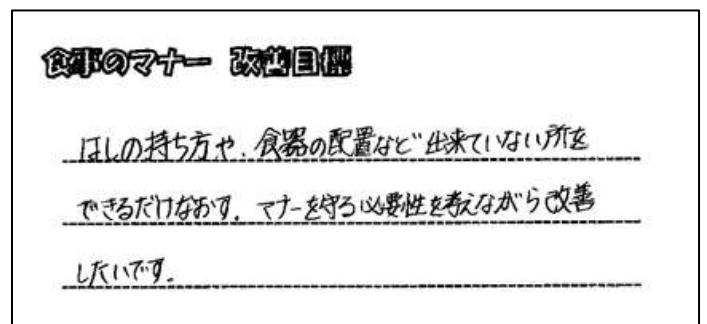 食事のマナー 改善目標
はしの持ち方や、食器の配置など出来ていない所を
できるだけなおす。マナーを守る必要性を考えながら改善
したいです。